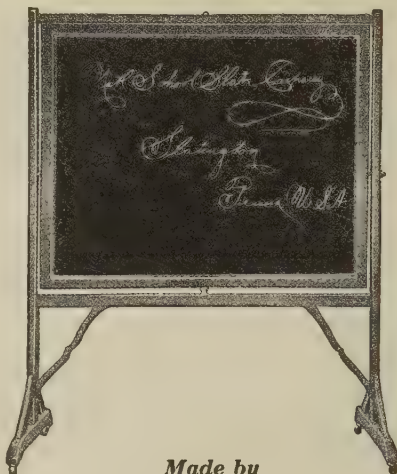 School Slate Company
Slatington
Penna U.S.A.
Made by